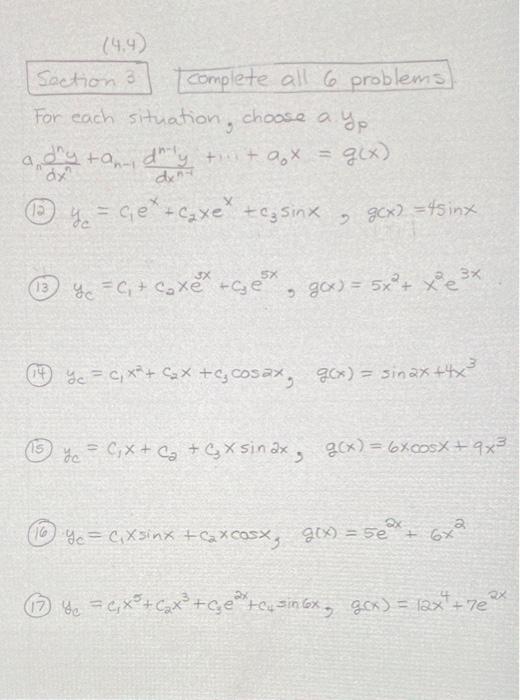 (4.4)
Section 3 complete all 6 problems
For each situation, choose a yₚ
aₙ dⁿy/dxⁿ + aₙ₋₁ dⁿ⁻¹y/dxⁿ⁻¹ + ... + a₀x = g(x)
(12) y_c = c₁eˣ + c₂xeˣ + c₃ sinx , g(x) = 4sinx
(13) y_c = c₁ + c₂xe³ˣ + c₃e⁵ˣ , g(x) = 5x² + x²e³ˣ
(14) y_c = c₁x² + c₂x + c₃cos2x, g(x) = sin2x + 4x³
(15) y_c = c₁x + c₂ + c₃x sin2x , g(x) = 6xcosx + 9x³
(16) y_c = c₁xsinx + c₂xcosx, g(x) = 5e²ˣ + 6x²
(17) y_c = c₁x⁵ + c₂x³ + c₃e²ˣ + c₄ sin6x, g(x) = 12x⁴ + 7e²ˣ